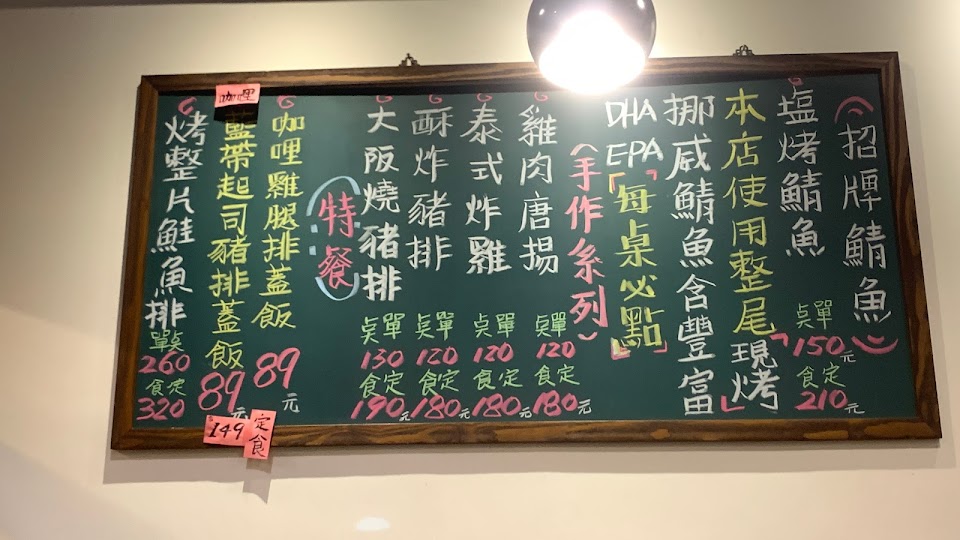 （招牌鯖魚）
塩烤鯖魚 單點150元 定食210元
本店使用整尾「現烤」
挪威鯖魚含豐富
DHA EPA「每桌必點」
（手作系列）
雞肉唐揚 單點120 定食180元
泰式炸雞 單點120 定食180元
酥炸豬排 單點120 定食180元
大阪燒豬排 單點130 定食190元
特餐
咖哩雞腿排蓋飯 89元
咖哩
藍帶起司豬排蓋飯 89元
149
定食
烤整片鮭魚排 單點260 定食320